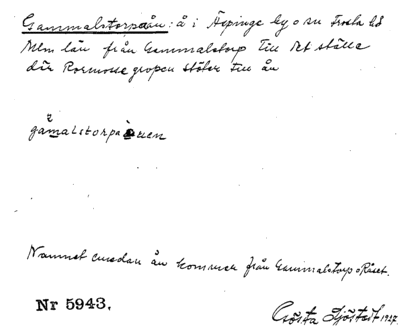 Gammalstorpaån: å i Äspinge by o sn Frosta hd
Mlm län från Gammalstorp till det ställe
där Rormossegropen stöter till ån
gamalstorpaånen
Namnet endan ån kommer från Gammalstorp o Röset.
Nr 5943.
Gösta Sjöstedt 1927.